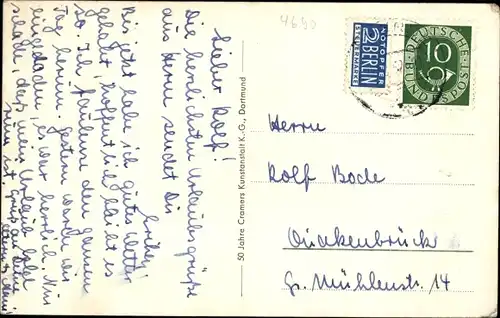 4690
Lieber Rolf!
Die herzlichsten Urlaubsgrüße
aus Herne sendet Dir
Bis jetzt habe ich gutes Wetter
gehabt, hoffentlich bleibt es
so. Ich faulenze den ganzen
Tag herum. Gestern waren wir
eingeladen, es war herrlich. Nur
schade, dass mein Urlaub bald
ist.
50 Jahre Cramers Kunstanstalt K.-G., Dortmund
NOTOPFER
2 BERLIN
STEUERMARKE
DEUTSCHE BUNDESPOST
10
Herrn
Rolf Bode
Quakenbrück
Gr. Mühlenstr. 14